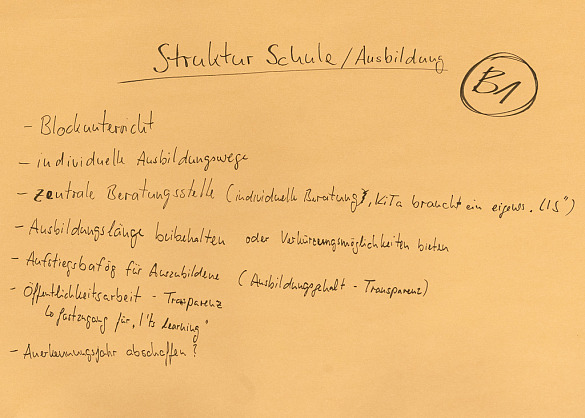 Struktur Schule / Ausbildung
B1
- Blockunterricht
- individuelle Ausbildungswege
- zentrale Beratungsstelle (individuelle Beratung, KiTa braucht ein eigenes "IS")
- Ausbildungslänge beibehalten oder Verkürzungsmöglichkeiten bieten
- Aufstiegsbafög für Auszubildene (Ausbildungsgehalt - Transparenz)
- Öffentlichkeitsarbeit - Transparenz
↳ Gastzugang für "It's learning"
- Anerkennungsjahr abschaffen?